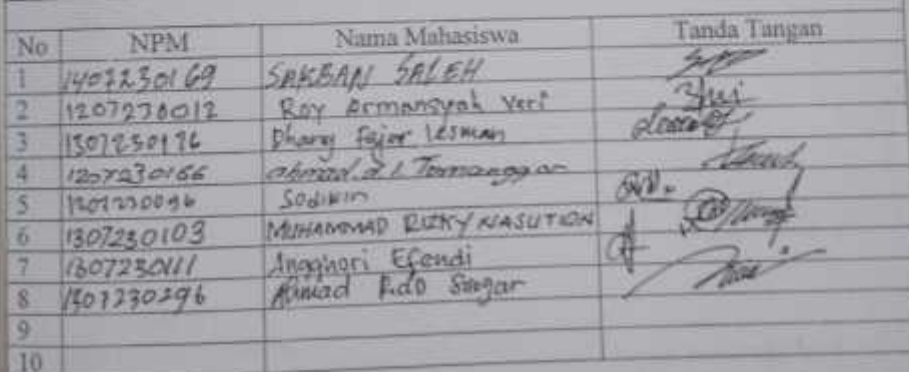 No NPM Nama Mahasiswa Tanda Tangan
1 1407230169 SAKBAN SALEH
2 1207230012 Roy Armansyah Veri
3 1307230176 Dhany Fajar Lesman
4 1207230166 Ahmad
5 Sodikin
6 1307230103 MUHAMMAD RIZKY NASUTION
7 1307230111 Angghori Efendi
8 1307230296 Ahmad Rido Siregar
9
10